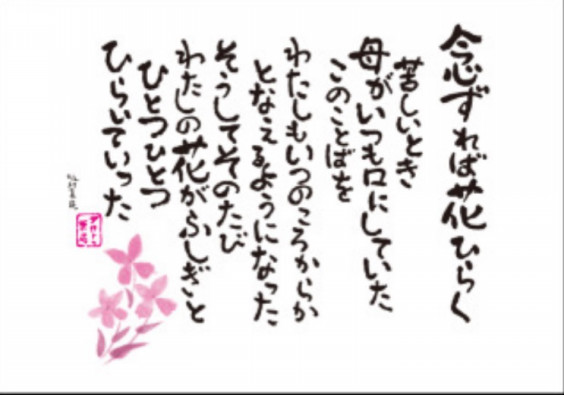 念ずれば花ひらく
苦しいとき
母がいつも口にしていた
このことばを
わたしもいつのころからか
となえるようになった
そうしてそのたび
わたしの花がふしぎと
ひとつひとつ
ひらいていった